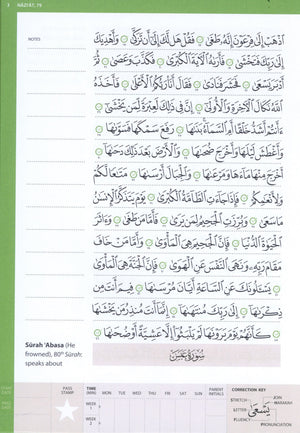 3 NĀZI'ĀT, 79
NOTES
ٱذْهَبْ إِلَىٰ فِرْعَوْنَ إِنَّهُۥ طَغَىٰ ۝ فَقُلْ هَل لَّكَ إِلَىٰٓ أَن تَزَكَّىٰ ۝ وَأَهْدِيَكَ
إِلَىٰ رَبِّكَ فَتَخْشَىٰ ۝ فَأَرَىٰهُ ٱلْـَٔايَةَ ٱلْكُبْرَىٰ ۝ فَكَذَّبَ وَعَصَىٰ ۝ ثُمَّ
أَدْبَرَ يَسْعَىٰ ۝ فَحَشَرَ فَنَادَىٰ ۝ فَقَالَ أَنَا۠ رَبُّكُمُ ٱلْأَعْلَىٰ ۝ فَأَخَذَهُ
ٱللَّهُ نَكَالَ ٱلْـَٔاخِرَةِ وَٱلْأُولَىٰٓ ۝ إِنَّ فِى ذَٰلِكَ لَعِبْرَةً لِّمَن يَخْشَىٰٓ ۝
ءَأَنتُمْ أَشَدُّ خَلْقًا أَمِ ٱلسَّمَآءُ ۚ بَنَىٰهَا ۝ رَفَعَ سَمْكَهَا فَسَوَّىٰهَا ۝
وَأَغْطَشَ لَيْلَهَا وَأَخْرَجَ ضُحَىٰهَا ۝ وَٱلْأَرْضَ بَعْدَ ذَٰلِكَ دَحَىٰهَآ ۝
أَخْرَجَ مِنْهَا مَآءَهَا وَمَرْعَىٰهَا ۝ وَٱلْجِبَالَ أَرْسَىٰهَا ۝ مَتَـٰعًا لَّكُمْ
وَلِأَنْعَـٰمِكُمْ ۝ فَإِذَا جَآءَتِ ٱلطَّآمَّةُ ٱلْكُبْرَىٰ ۝ يَوْمَ يَتَذَكَّرُ ٱلْإِنسَـٰنُ
مَا سَعَىٰ ۝ وَبُرِّزَتِ ٱلْجَحِيمُ لِمَن يَرَىٰ ۝ فَأَمَّا مَن طَغَىٰ ۝ وَءَاثَرَ
ٱلْحَيَوٰةَ ٱلدُّنْيَا ۝ فَإِنَّ ٱلْجَحِيمَ هِىَ ٱلْمَأْوَىٰ ۝ وَأَمَّا مَنْ خَافَ
مَقَامَ رَبِّهِۦ وَنَهَى ٱلنَّفْسَ عَنِ ٱلْهَوَىٰ ۝ فَإِنَّ ٱلْجَنَّةَ هِىَ ٱلْمَأْوَىٰ ۝
يَسْـَٔلُونَكَ عَنِ ٱلسَّاعَةِ أَيَّانَ مُرْسَىٰهَا ۝ فِيمَ أَنتَ مِن
ذِكْرَىٰهَآ ۝ إِلَىٰ رَبِّكَ مُنتَهَىٰهَآ ۝ إِنَّمَآ أَنتَ مُنذِرُ مَن يَخْشَىٰهَا
۝ كَأَنَّهُمْ يَوْمَ يَرَوْنَهَا لَمْ يَلْبَثُوٓا۟ إِلَّا عَشِيَّةً أَوْ ضُحَىٰهَا ۝
سُورَةُ عَبَسَ
Sūrah 'Abasa (He
frowned), 80th Sūrah:
speaks about
START DATE
PASS DATE
PASS STAMP
TIME (MIN) MON TUE WED THU FRI SAT SUN PARENT INITIALS
WEEK 1
WEEK 2
CORRECTION KEY
STRETCH
JOIN
HARAKAH
LETTER
يَسْعَىٰ
FLUENCY
PRONUNCIATION